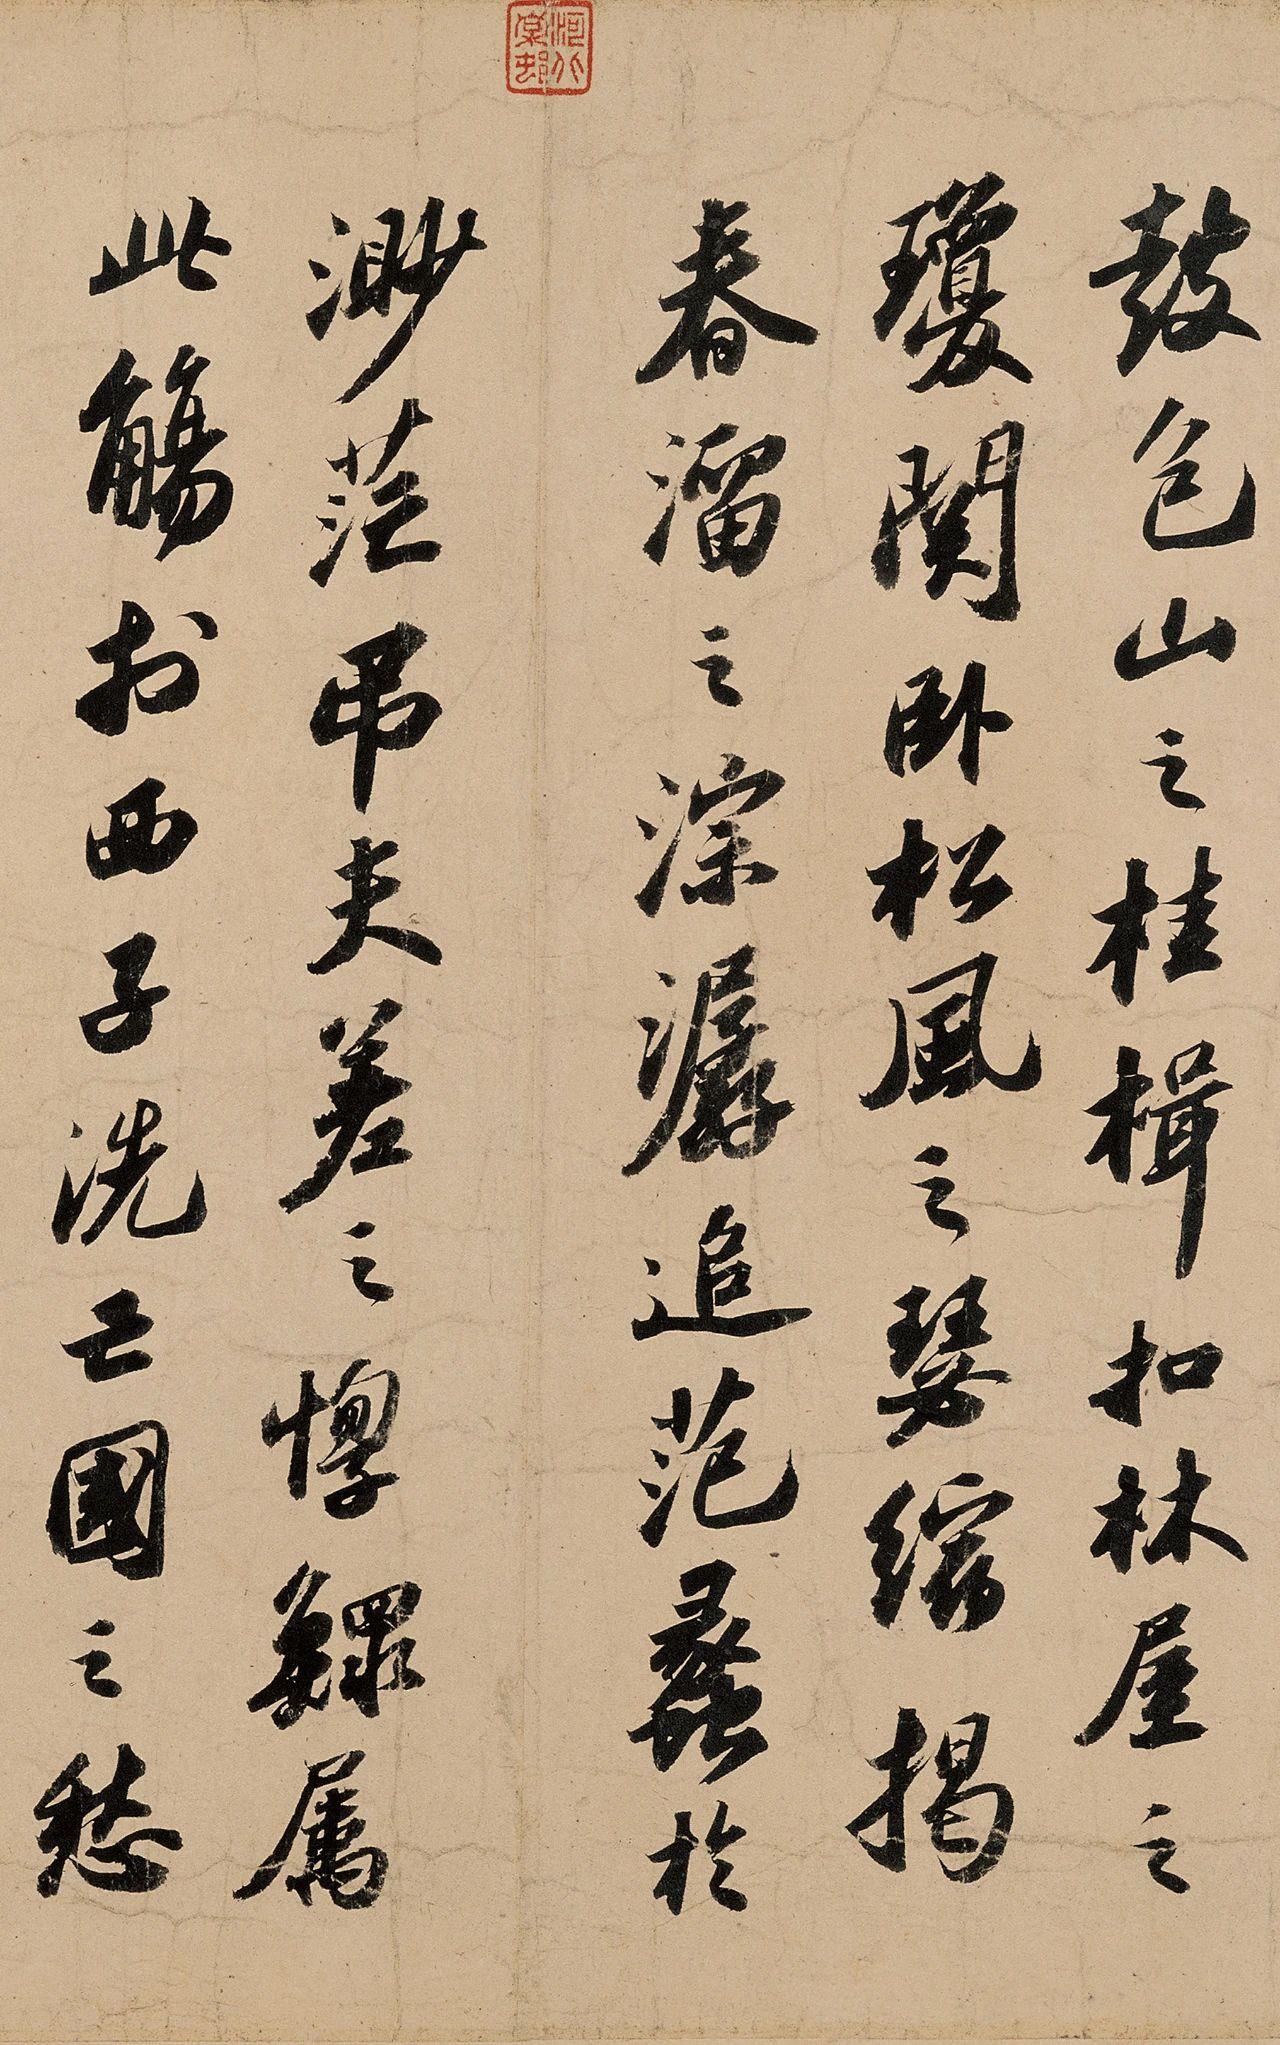 河北棠邨
鼓包山之桂楫扣林屋之
瓊関卧松風之瑟縮揭
春溜之淙潺追范蠡於
渺茫弔夫差之惸鰥属
此觴扵西子洗亡國之愁